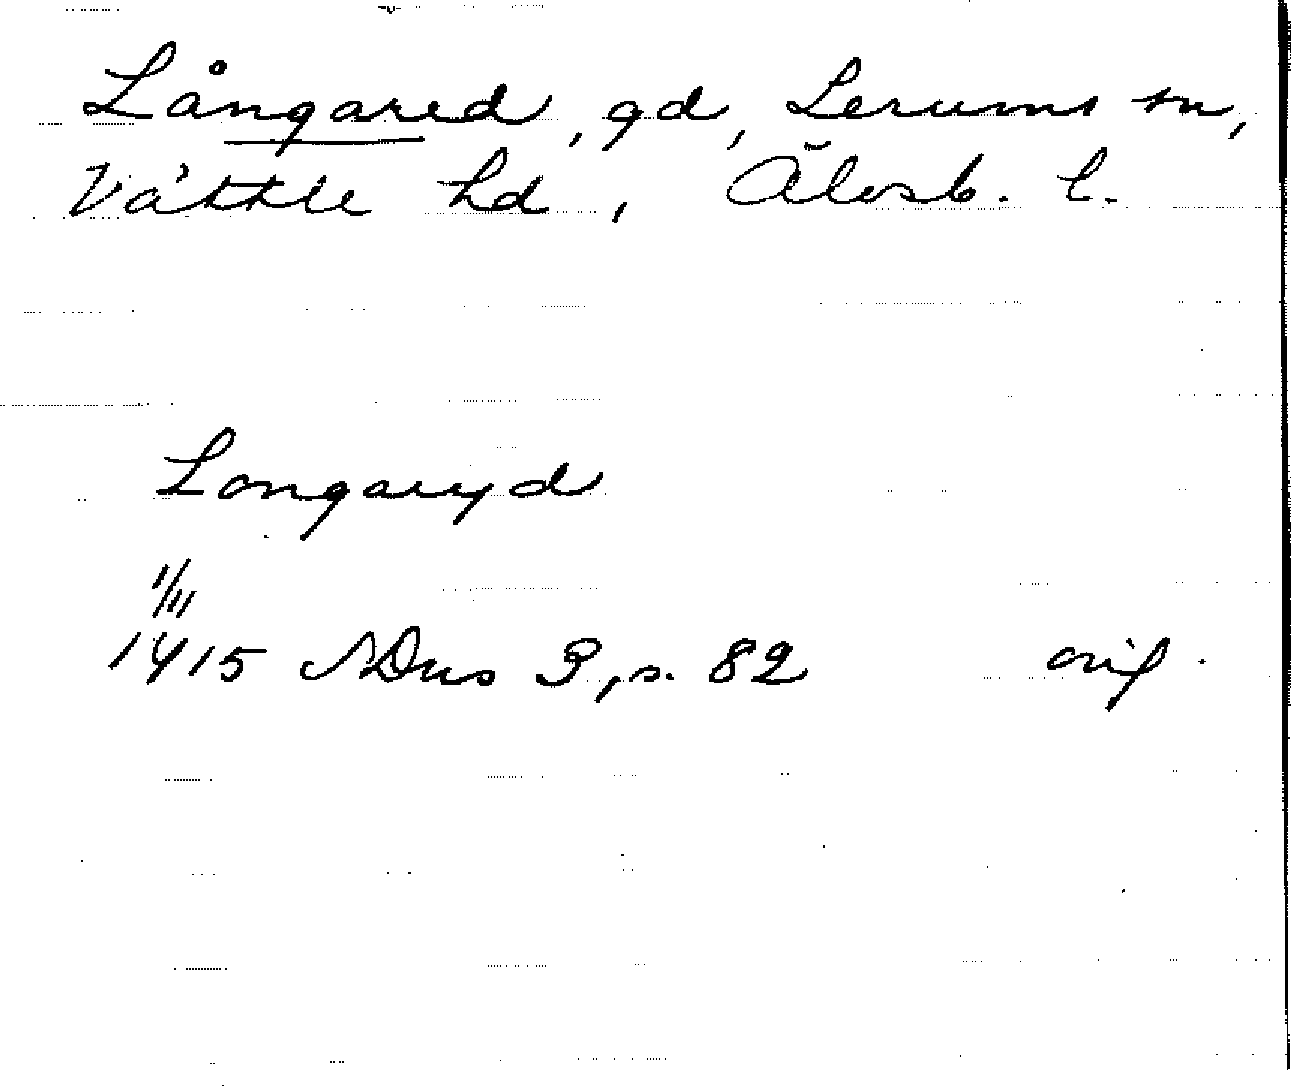 Långared, gd, Lerums sn,
Vättle hd, Älvsb. l.
Longaryd
1/11
1415 SDns 3, s. 82 orig.